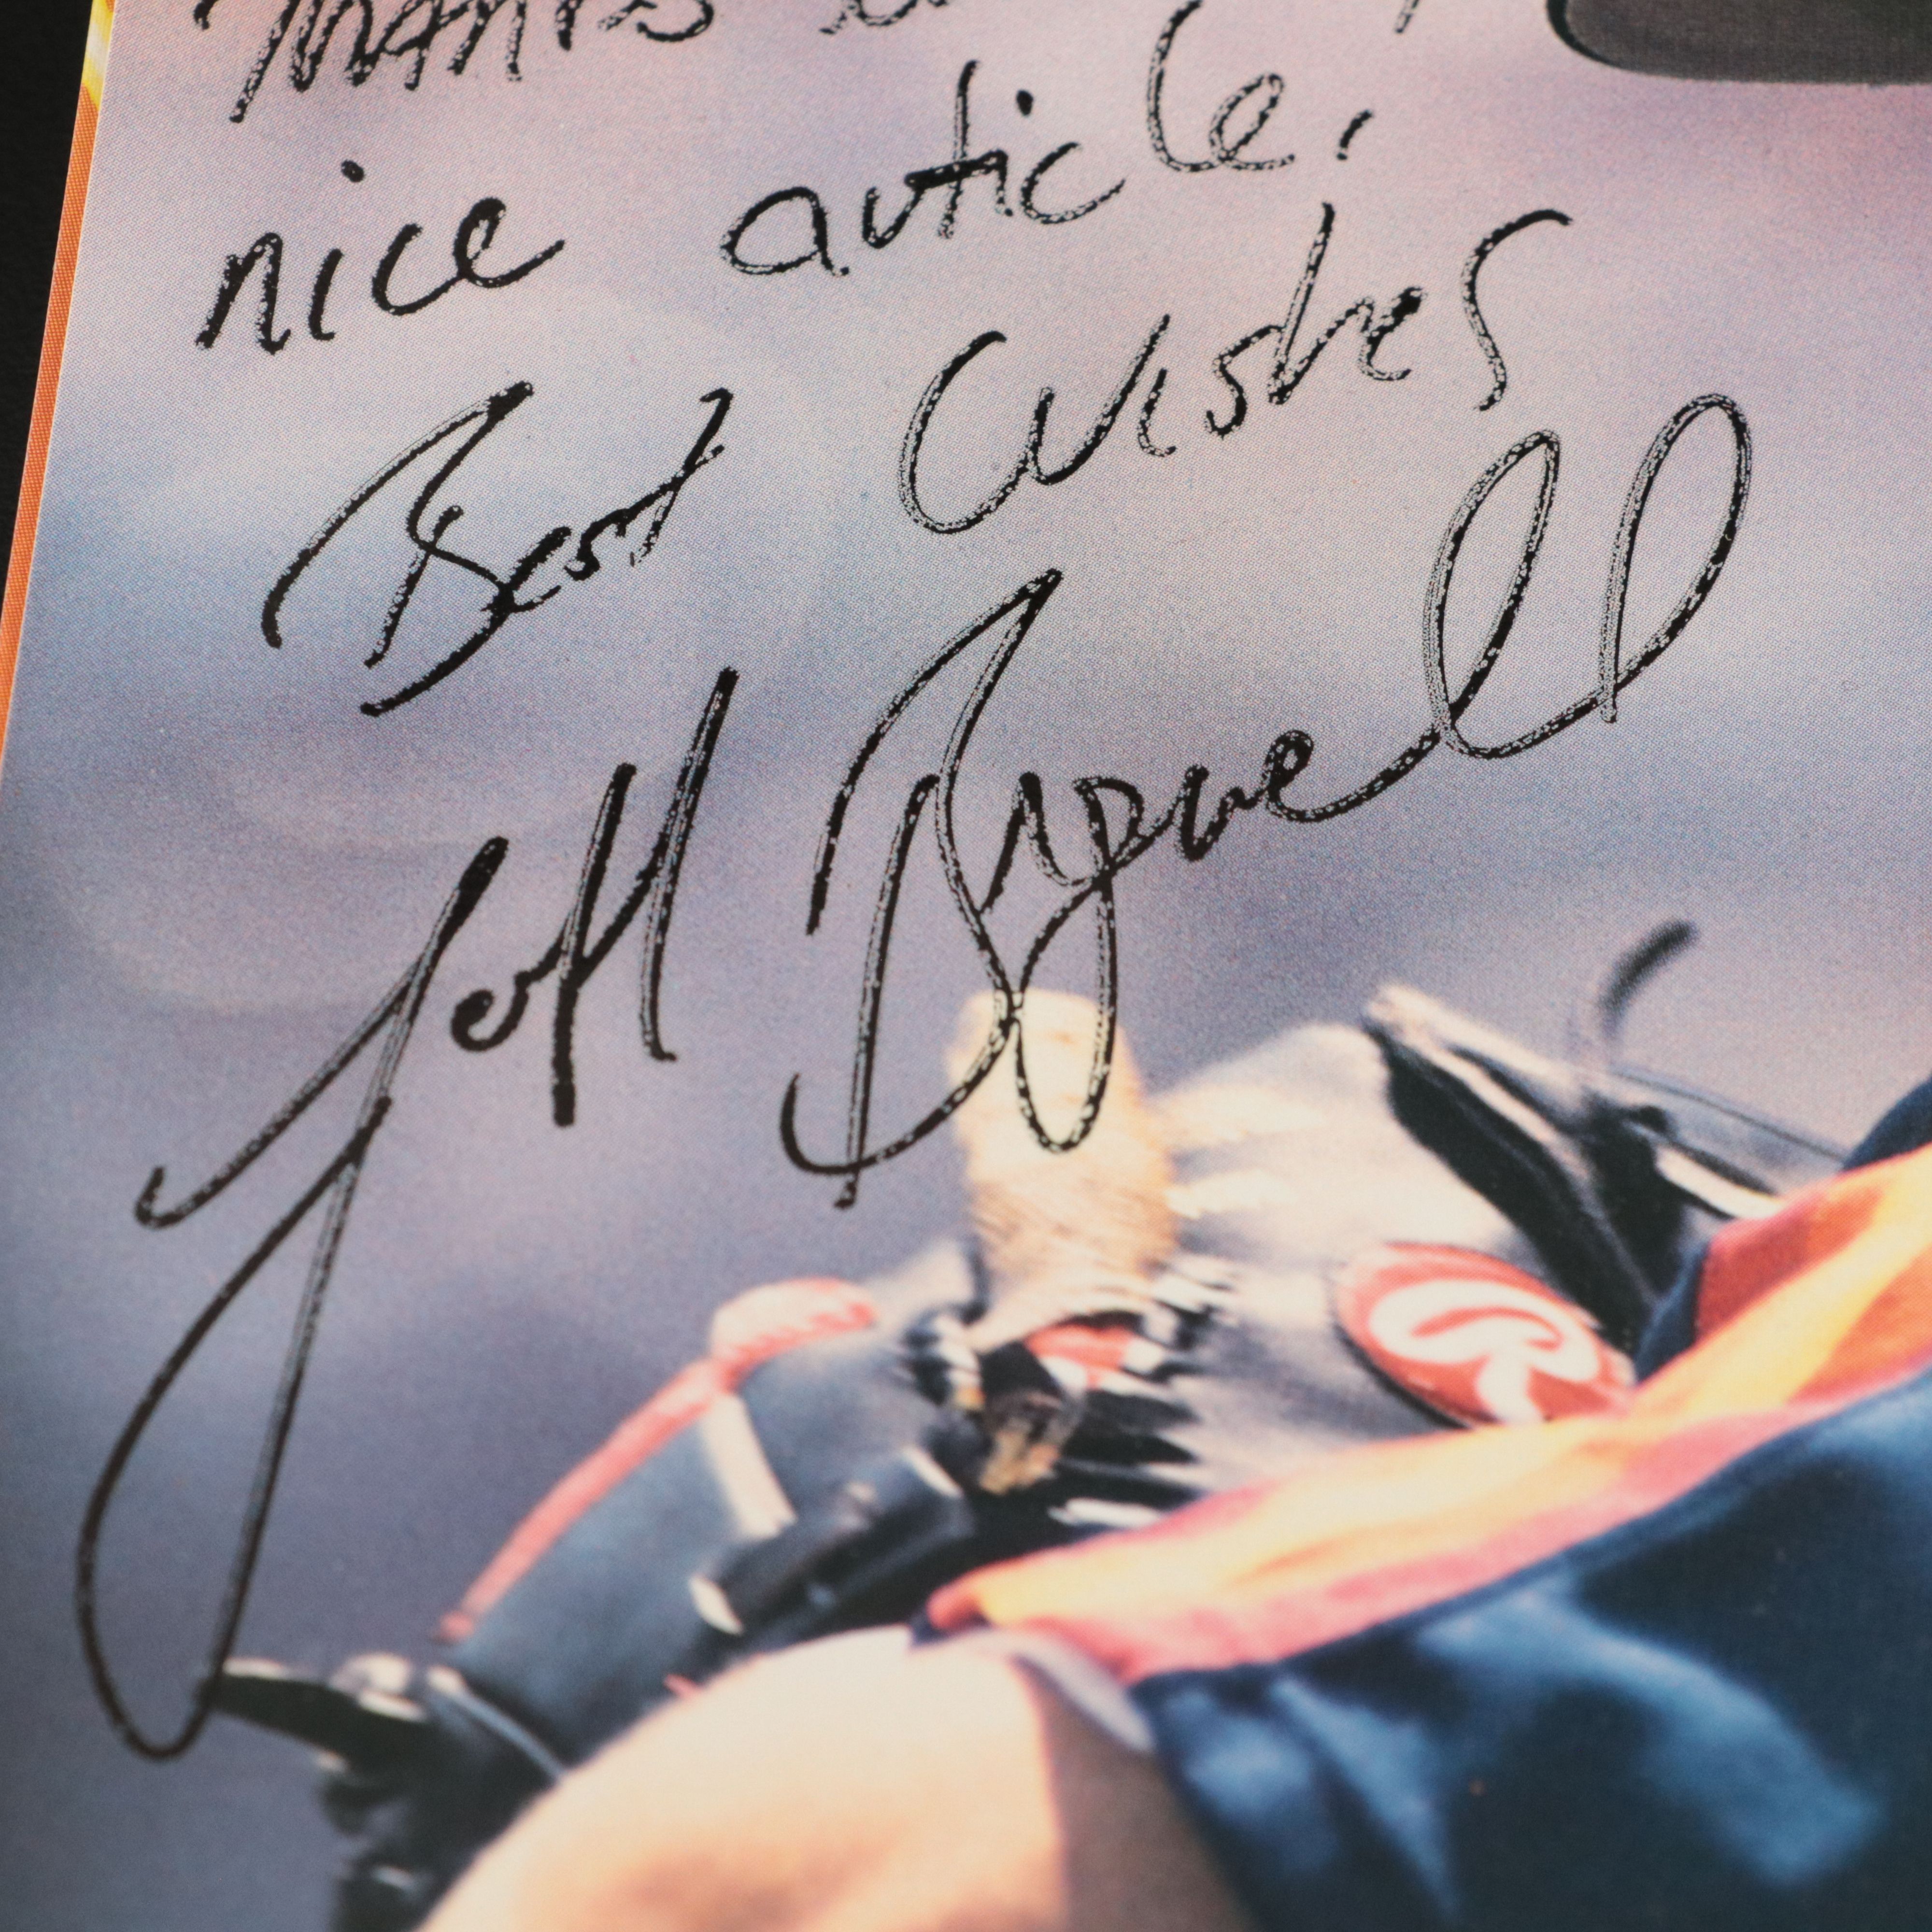 Thanks
nice article!
Best Wishes
Jeff Bagwell
R